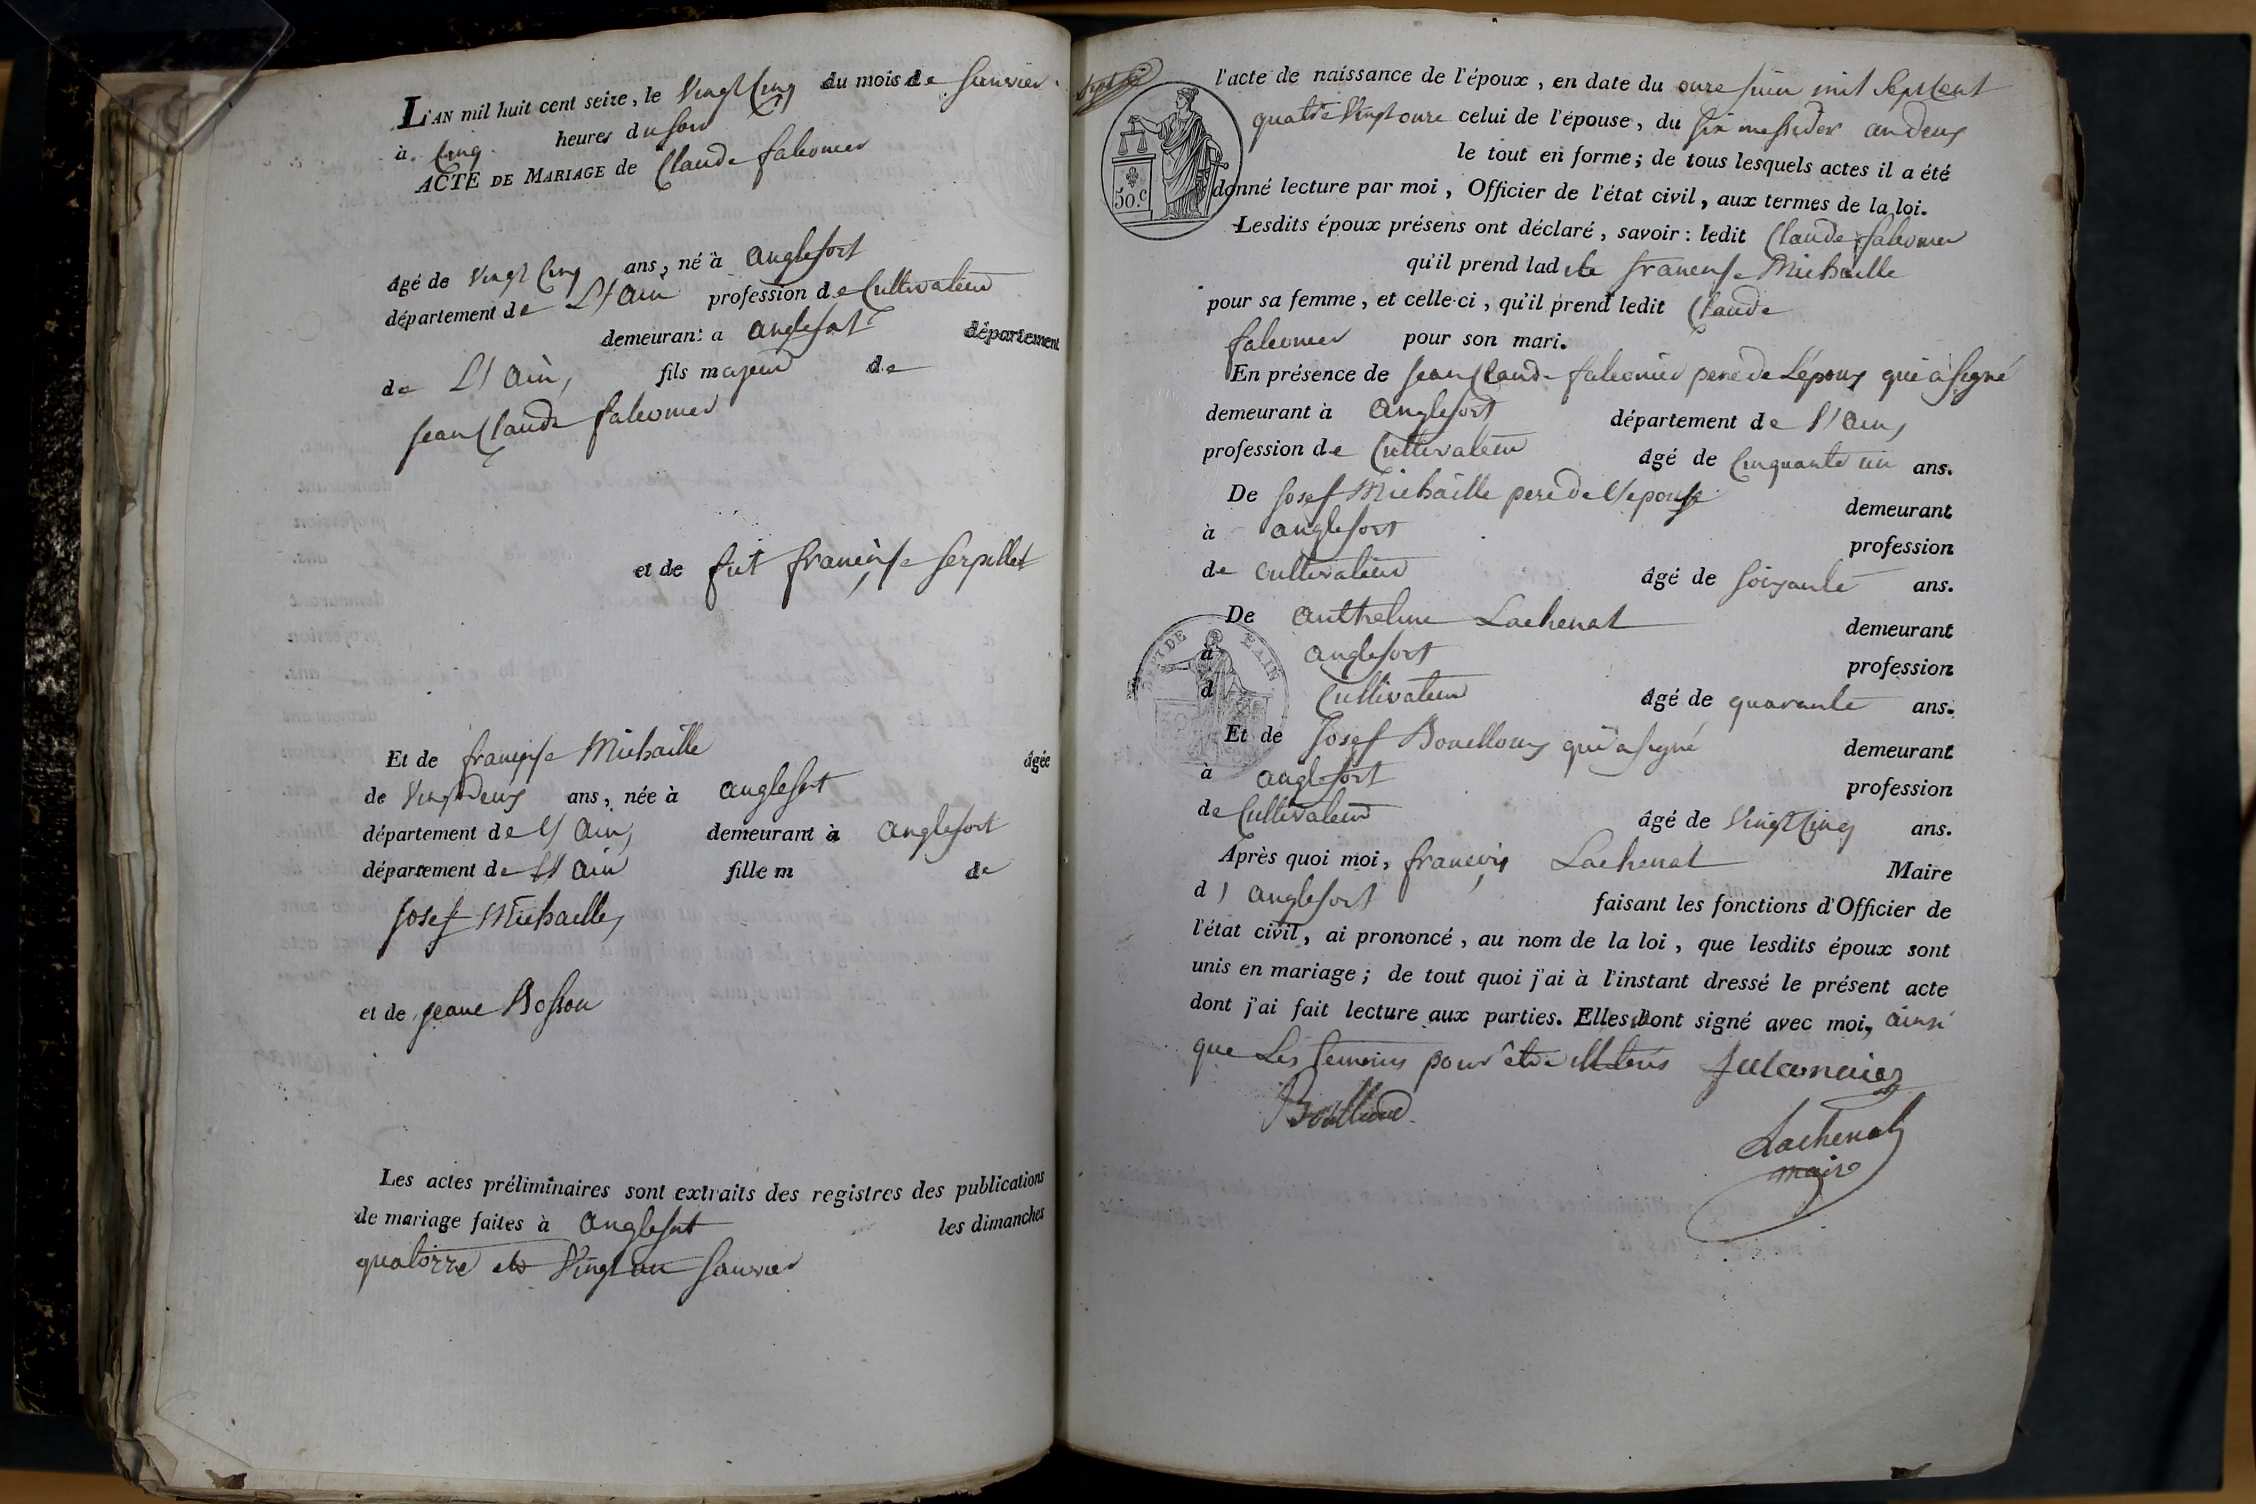 L'AN mil huit cent seize, le Vingt Cinq du mois de Janvier
à Cinq heures du soir
ACTE DE MARIAGE de Claude falconier
âgé de Vingt Cinq ans, né à anglefort
département de L'Ain profession de Cultivateur
demeurant a anglefort département
de L'Ain, fils majeur de
jean Claude falconier
et de fut françoise Serpillet
Et de françoise Michaille âgée
de Vingt deux ans, née à anglefort
département de L'Ain, demeurant à anglefort
département de L'Ain fille m de
josef Michaille,
et de jeane Bosson
Les actes préliminaires sont extraits des registres des publications
de mariage faites à anglefort les dimanches
quatorze et Vingt un Janvier
l'acte de naissance de l'époux, en date du onze juin mil Sept Cent
quatre Vingt onze celui de l'épouse, du Six messidor an deux
le tout en forme; de tous lesquels actes il a été
50.c donné lecture par moi, Officier de l'état civil, aux termes de la loi.
Lesdits époux présens ont déclaré, savoir: ledit Claude falconier
qu'il prend ladite françoise Michaille
pour sa femme, et celle-ci, qu'il prend ledit Claude
falconier pour son mari.
En présence de jean Claude falconier pere de L'époux qui a signé
demeurant à anglefort département de L'Ain,
profession de Cultivateur âgé de Cinquante un ans.
De josef Michaille pere de L'epouse demeurant
à anglefort profession
de Cultivateur âgé de Soixante ans.
De anthelme Lachenal demeurant
à anglefort profession
d Cultivateur âgé de quarante ans.
Et de Josef Bouelloux qui a signé demeurant
à anglefort profession
de Cultivateur âgé de Vingt Cinq ans.
Après quoi moi, françois Lachenal Maire
d' anglefort faisant les fonctions d'Officier de
l'état civil, ai prononcé, au nom de la loi, que lesdits époux sont
unis en mariage; de tout quoi j'ai à l'instant dressé le présent acte
dont j'ai fait lecture aux parties. Elles ont signé avec moi, ainsi
que Les temoins pour être illiterés falconaier
Lachenal
maire